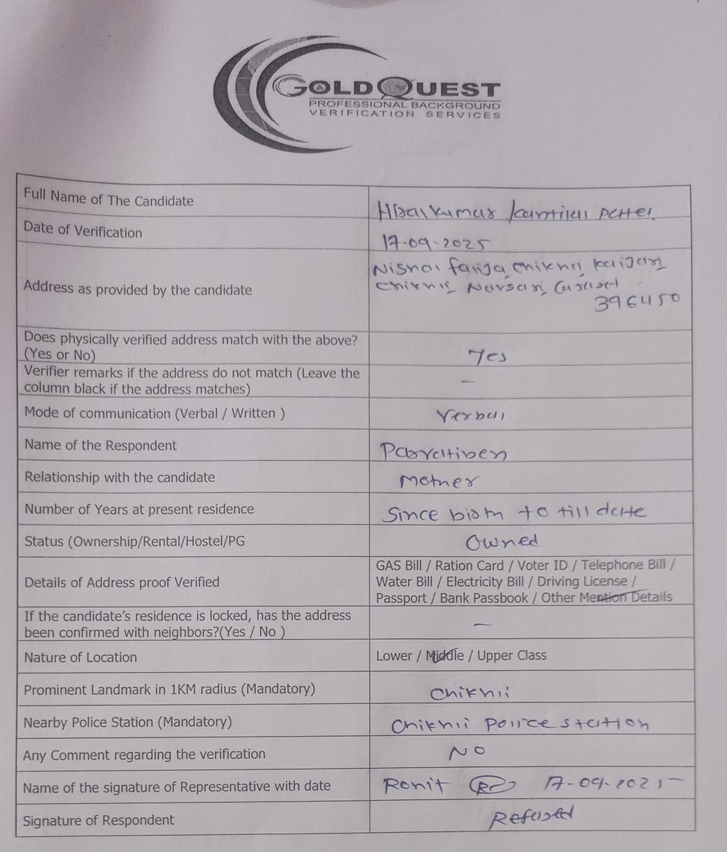 GOLDQUEST
PROFESSIONAL BACKGROUND
VERIFICATION SERVICES
Full Name of The Candidate Hiralkumar kantilal Patel
Date of Verification 17-09-2025
Address as provided by the candidate Nishal faliya, chikhli,
chikhli Navsari, Gujarat
396450
Does physically verified address match with the above?
(Yes or No) Yes
Verifier remarks if the address do not match (Leave the
column black if the address matches) –
Mode of communication (Verbal / Written ) Verbal
Name of the Respondent Parvatiben
Relationship with the candidate Mother
Number of Years at present residence Since birth to till date
Status (Ownership/Rental/Hostel/PG Owned
Details of Address proof Verified GAS Bill / Ration Card / Voter ID / Telephone Bill /
Water Bill / Electricity Bill / Driving License /
Passport / Bank Passbook / Other Mention Details
If the candidate's residence is locked, has the address
been confirmed with neighbors?(Yes / No ) –
Nature of Location Lower / Middle / Upper Class
Prominent Landmark in 1KM radius (Mandatory) Chikhli
Nearby Police Station (Mandatory) Chikhli police station
Any Comment regarding the verification NO
Name of the signature of Representative with date Ronit 17-09-2025
Signature of Respondent Refused